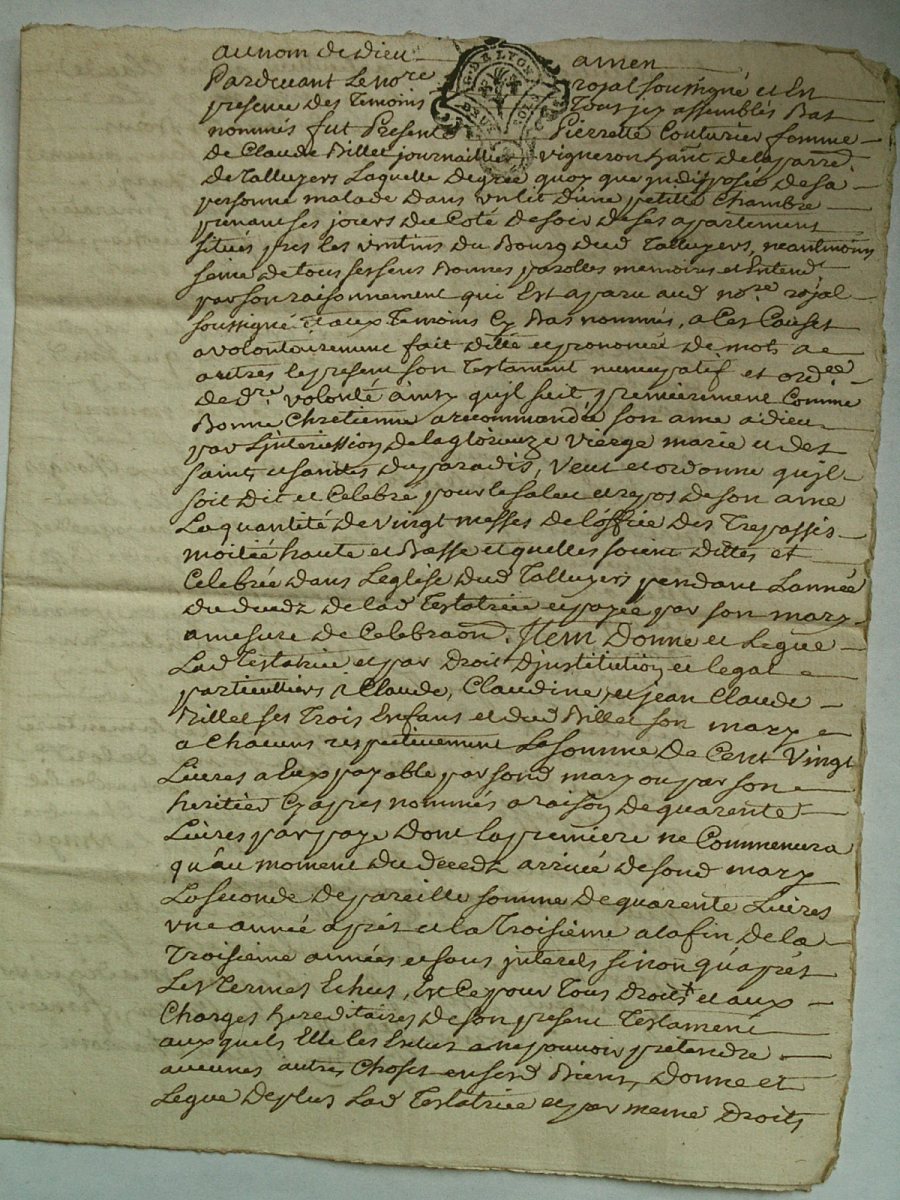 au nom de Dieu amen
Pardevant Le no.re royal soussigné et En
presence Des Temoins Tous icy assemblés Bas
nommés fut Presente Pierrette Couturier femme
De Claude Billet journaillier vigneron hant De la parre
De Talluyers Laquelle De gré quoy que indisposée De sa
personne malade Dans un lit D'une petite Chambre
prenant ses jours Du Coté De soir De ses apartement
situés pres les vintins Du Bourg Dud Talluyers, neantmoins
seine De tous ses sens Bonnes parolles memoires et Entend.t
par son raisonnement qui Est aparu aud no.re royal
soussigné et aux Temoins Cy Bas nommés, a Ces Causes
a volontairement fait Ditté et prononcé De mots a
autres le present son Testament nuncupatif et ord.ee
De d.re volonté ainsy qu'jl suit, premierement Comme
Bonne Chretienne a recommandée son ame a Dieu
par L'jntercession De la glorieuze vierge marie et des
saints et saintes Du paradis, Veut et ordonne qu'jl
soit Dit et Celebré pour le salut et repos De son ame
La quantité De vingt messes De l'office Des Trepassés
moitiée haute et Basse lesquelles soient Dittes et
Celebrée Dans L'eglise Dud Talluyers pendant L'année
Du decedz De lad Testatrice et payée par son mary
a mesure De Celebraon. Jtem Donne et Legue
Lad Testatrice et par Droit D'jnstitution et legat
particulliers a Claude, Claudine, et jean Claude
Billet ses Trois Enfans et dud Billet son mary
a Chacuns respectivement La somme De Cent Vingt
Livres a Eux payable par sond mary ou par son
heritier Cy apres nommés a raison De quarente
Livres par paye Dont la premiere ne Commencera
qu'au moment Du decedz arrivée De sond mary
La seconde De pareille somme De quarente Livres
une année aprés et la Troisieme a la fin De la
Troisieme années et sans jnterels sinon qu'aprés
Les Termes Echus, Est Ce pour Tous Droits et aux
Charges hereditaires De son present Testament
aux quels Elle les Exclus a ne pouvoir pretendre
aucunes autres Choses en sesd Biens, Donne et
Legue De plus Lad Testatrice et par meme Droits
G. DE LYON